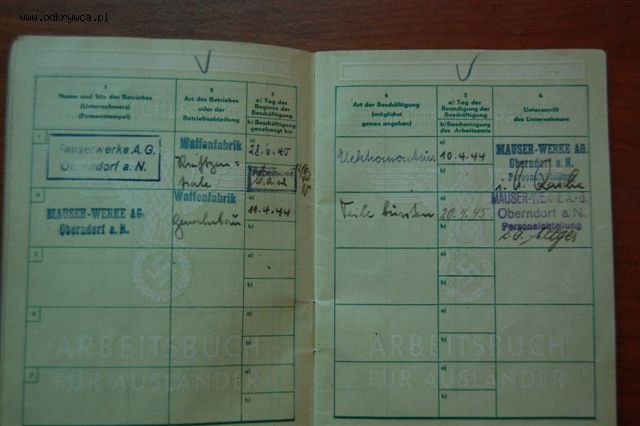 www.odkrywca.pl
V
V
1
Name und Sitz des Betriebes
(Unternehmers)
(Firmenstempel)
2
Art des Betriebes
oder der
Betriebsabteilung
3
a) Tag des
Beginns der
Beschäftigung
b) Beschäftigung
genehmigt bis
1
Mauserwerke A.G.
Oberndorf a. N.
Waffenfabrik
a)
b)
2
MAUSER-WERKE AG.
Oberndorf a. N.
Waffenfabrik
Gewehrbau
a)
11.4.44
b)
3
a)
b)
4
a)
b)
5
a)
b)
ARBEITSBUCH
FÜR AUSLÄNDER
4
Art der Beschäftigung
(möglichst
genau angeben)
5
a) Tag der
Beendigung der
Beschäftigung
b) Bescheinigung
des Arbeitsamts
6
Unterschrift
des Unternehmers
a)
10.4.44
b)
MAUSER-WERKE AG.
Oberndorf a. N.
Personalabteilung
Teile bürsten
a)
20.4.45
b)
MAUSER-WERKE A.-G.
Oberndorf a. N.
Personalabteilung
a)
b)
a)
b)
a)
b)
ARBEITSBUCH
FÜR AUSLÄNDER